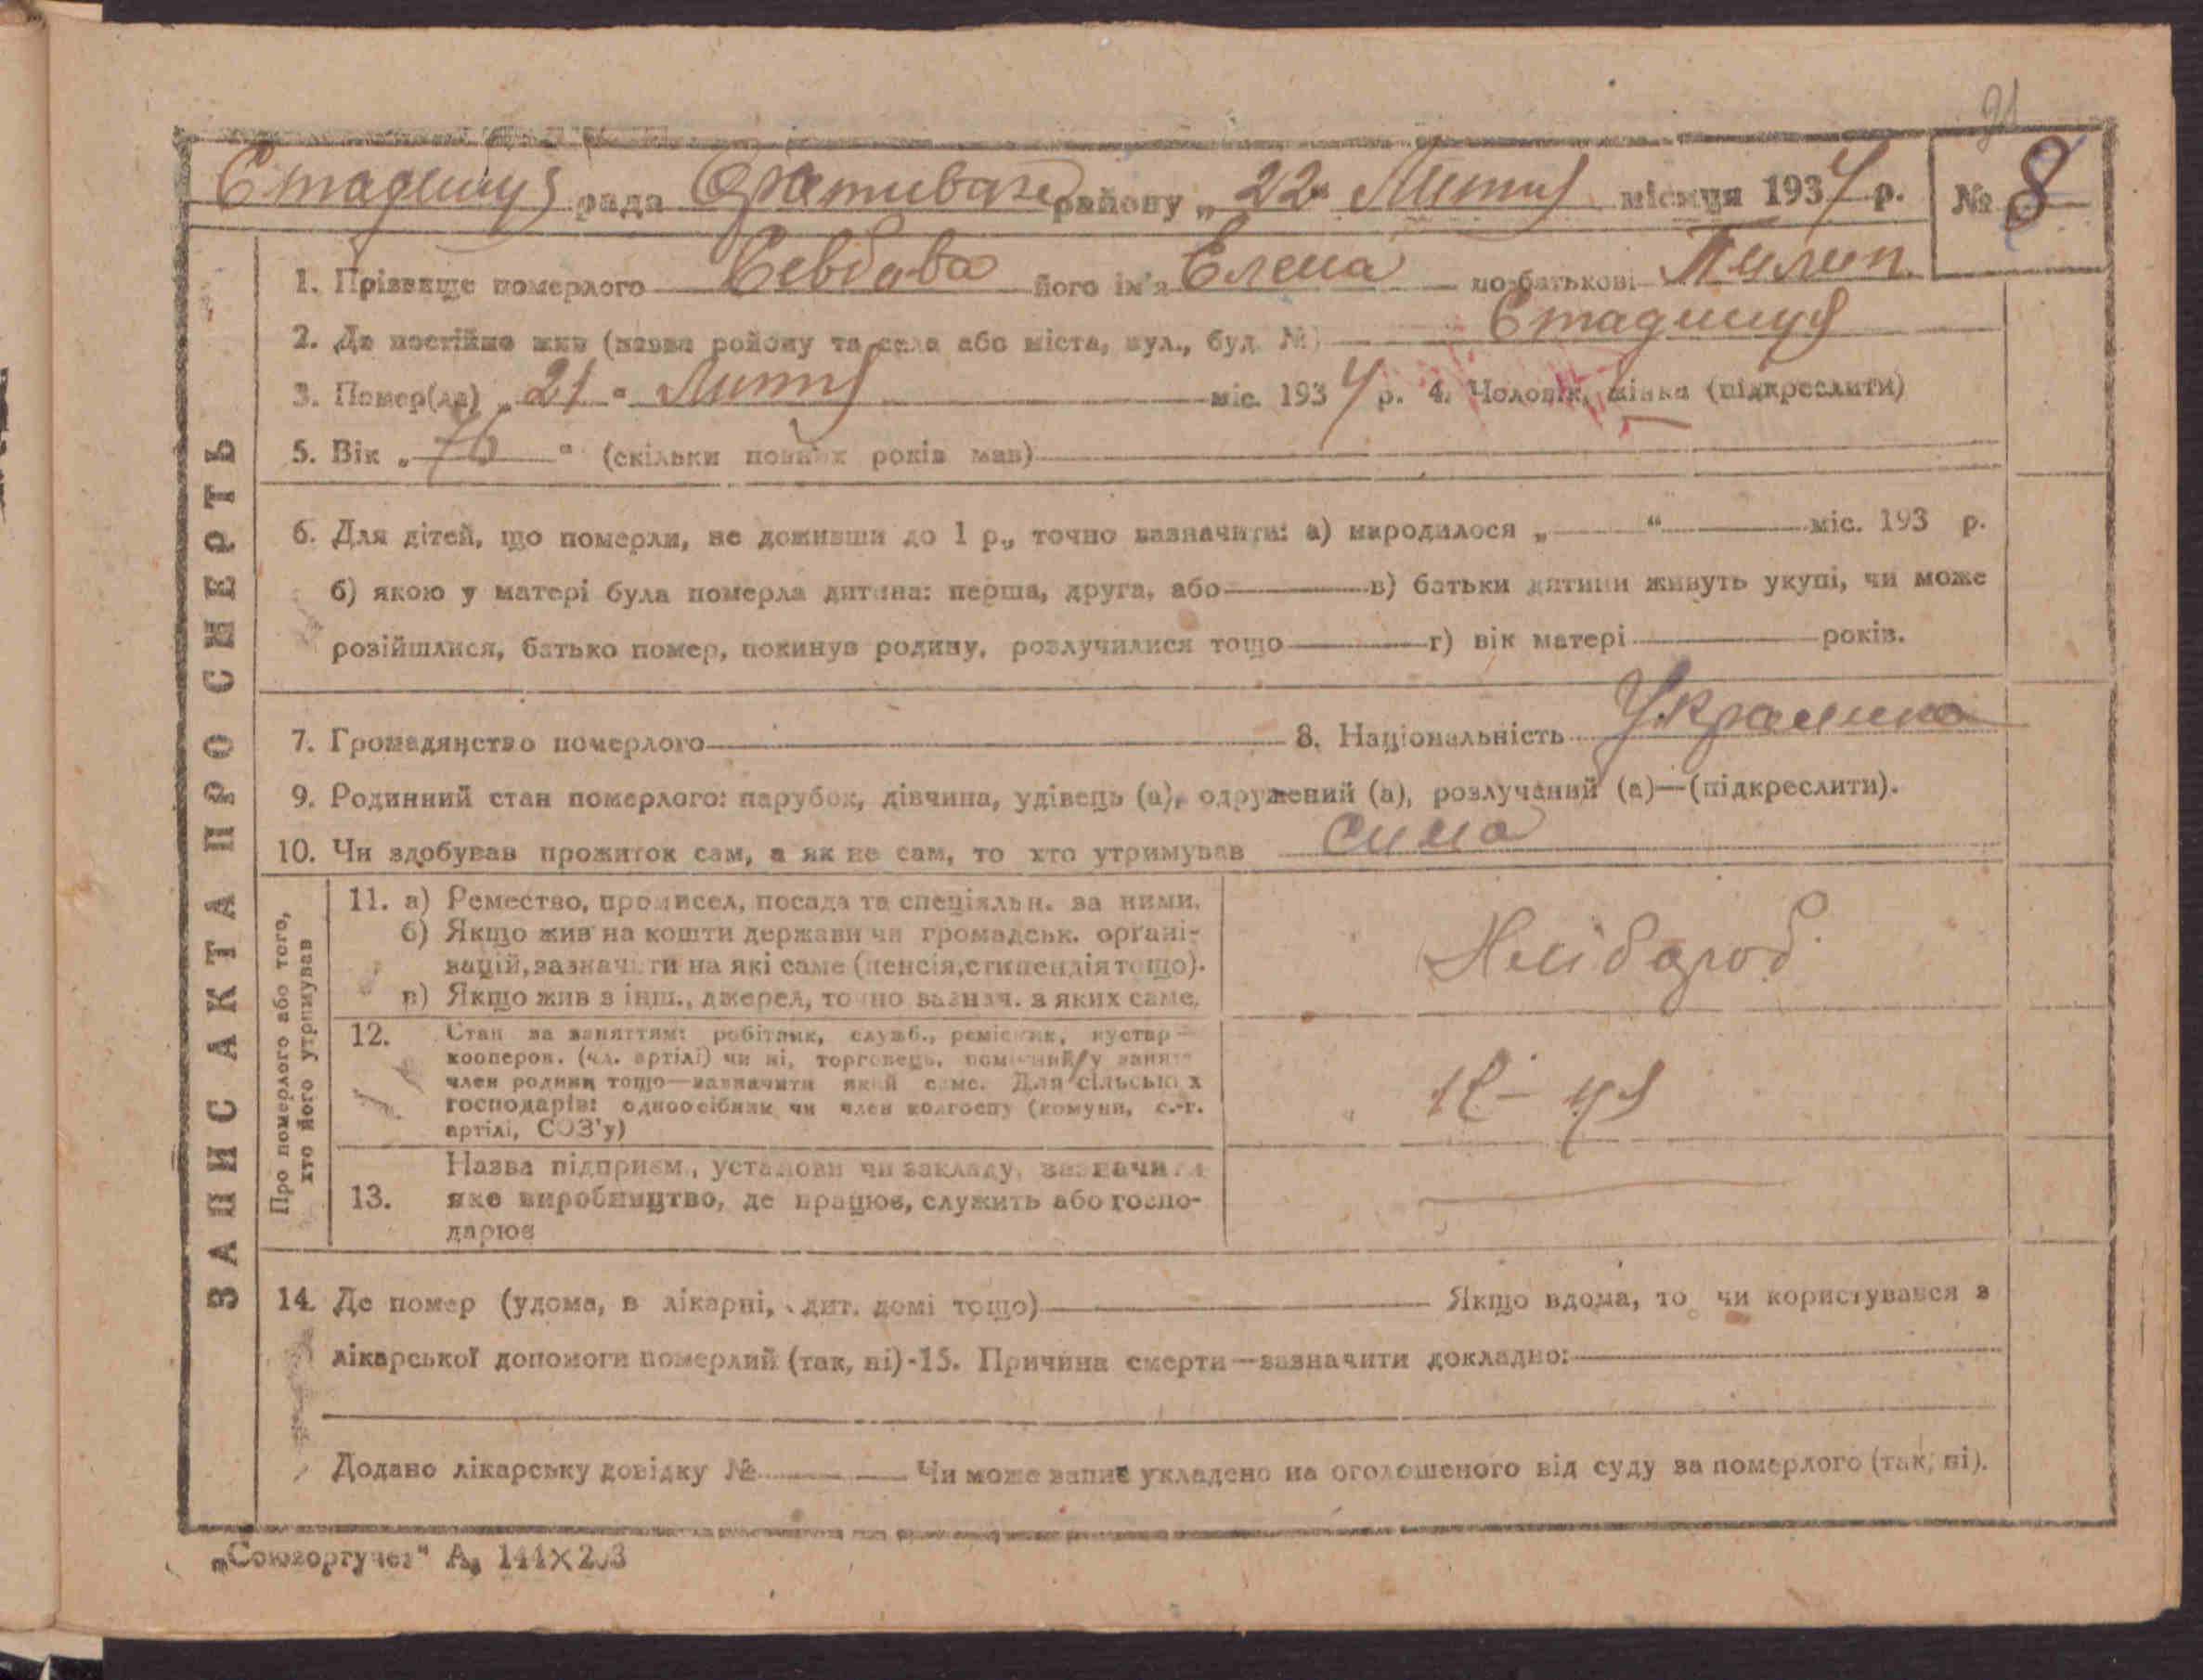 21
Стадниця рада району „22“ Лютий місяця 1934 р. № 8
ЗАПИС АКТА ПРО СМЕРТЬ
1. Прізвище померлого його ім'я Елена по-батькові Пилип.
2. Де постійно жив (назва району та села або міста, вул., буд. №)
3. Помер(ла) „21“ Лютий міс. 1934 р. 4. Чоловік, жінка (підкреслити)
5. Вік „76“ (скільки повних років мав)
6. Для дітей, що померли, не доживши до 1 р., точно зазначити: а) народилося „ “ міс. 193 р.
б) якою у матері була померла дитина: перша, друга, або в) батьки дитини живуть укупі, чи може
розійшлися, батько помер, покинув родину, розлучилися тощо г) вік матері років.
7. Громадянство померлого 8. Національність Украинка
9. Родинний стан померлого: парубок, дівчина, удівець (а), одружений (а), розлучений (а)—(підкреслити).
10. Чи здобував прожиток сам, а як не сам, то хто утримував сама
Про померлого або того,
хто його утримував
11. а) Ремество, промисел, посада та спеціяльн. за ними.
б) Якщо жив на кошти держави чи громадськ. органі-
зацій, зазначити на які саме (пенсія, стипендія тощо).
в) Якщо жив з інш., джерел, точно зазнач. з яких саме.
12. Стан за заняттям: робітник, служб., реміcник, кустар—
кооперов. (чл. артілі) чи ні, торговець, помічний у занят.
член родини тощо—зазначити який саме. Для сільських
господарів: одноосібник чи член колгоспу (комуни, с.-г.
артілі, СОЗ'у)
13. Назва підприєм., установи чи закладу, зазначити
яке виробництво, де працює, служить або госпо-
дарює
14. Де помер (удома, в лікарні, дит. домі тощо) Якщо вдома, то чи користувався з
лікарської допомоги померлий (так, ні)-15. Причина смерти—зазначити докладно:
Додано лікарську довідку № Чи може запис укладено на оголошеного від суду за померлого (так, ні).
„Союзоргучет“ А₅ 144×203